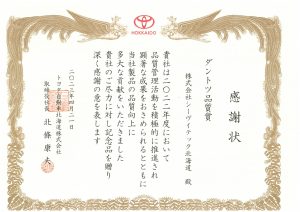 HOKKAIDO
感謝状
ダントツ品質賞
株式会社シーヴイテック北海道 殿
貴社は二〇二二年度において
品質管理活動を積極的に推進され
顕著な成果をおさめられるとともに
当社製品の品質向上に
多大な貢献をいただきました
貴社のご尽力に対し記念品を贈り
深く感謝の意を表します
二〇二三年四月二一日
トヨタ自動車北海道株式会社
取締役社長 北條康夫